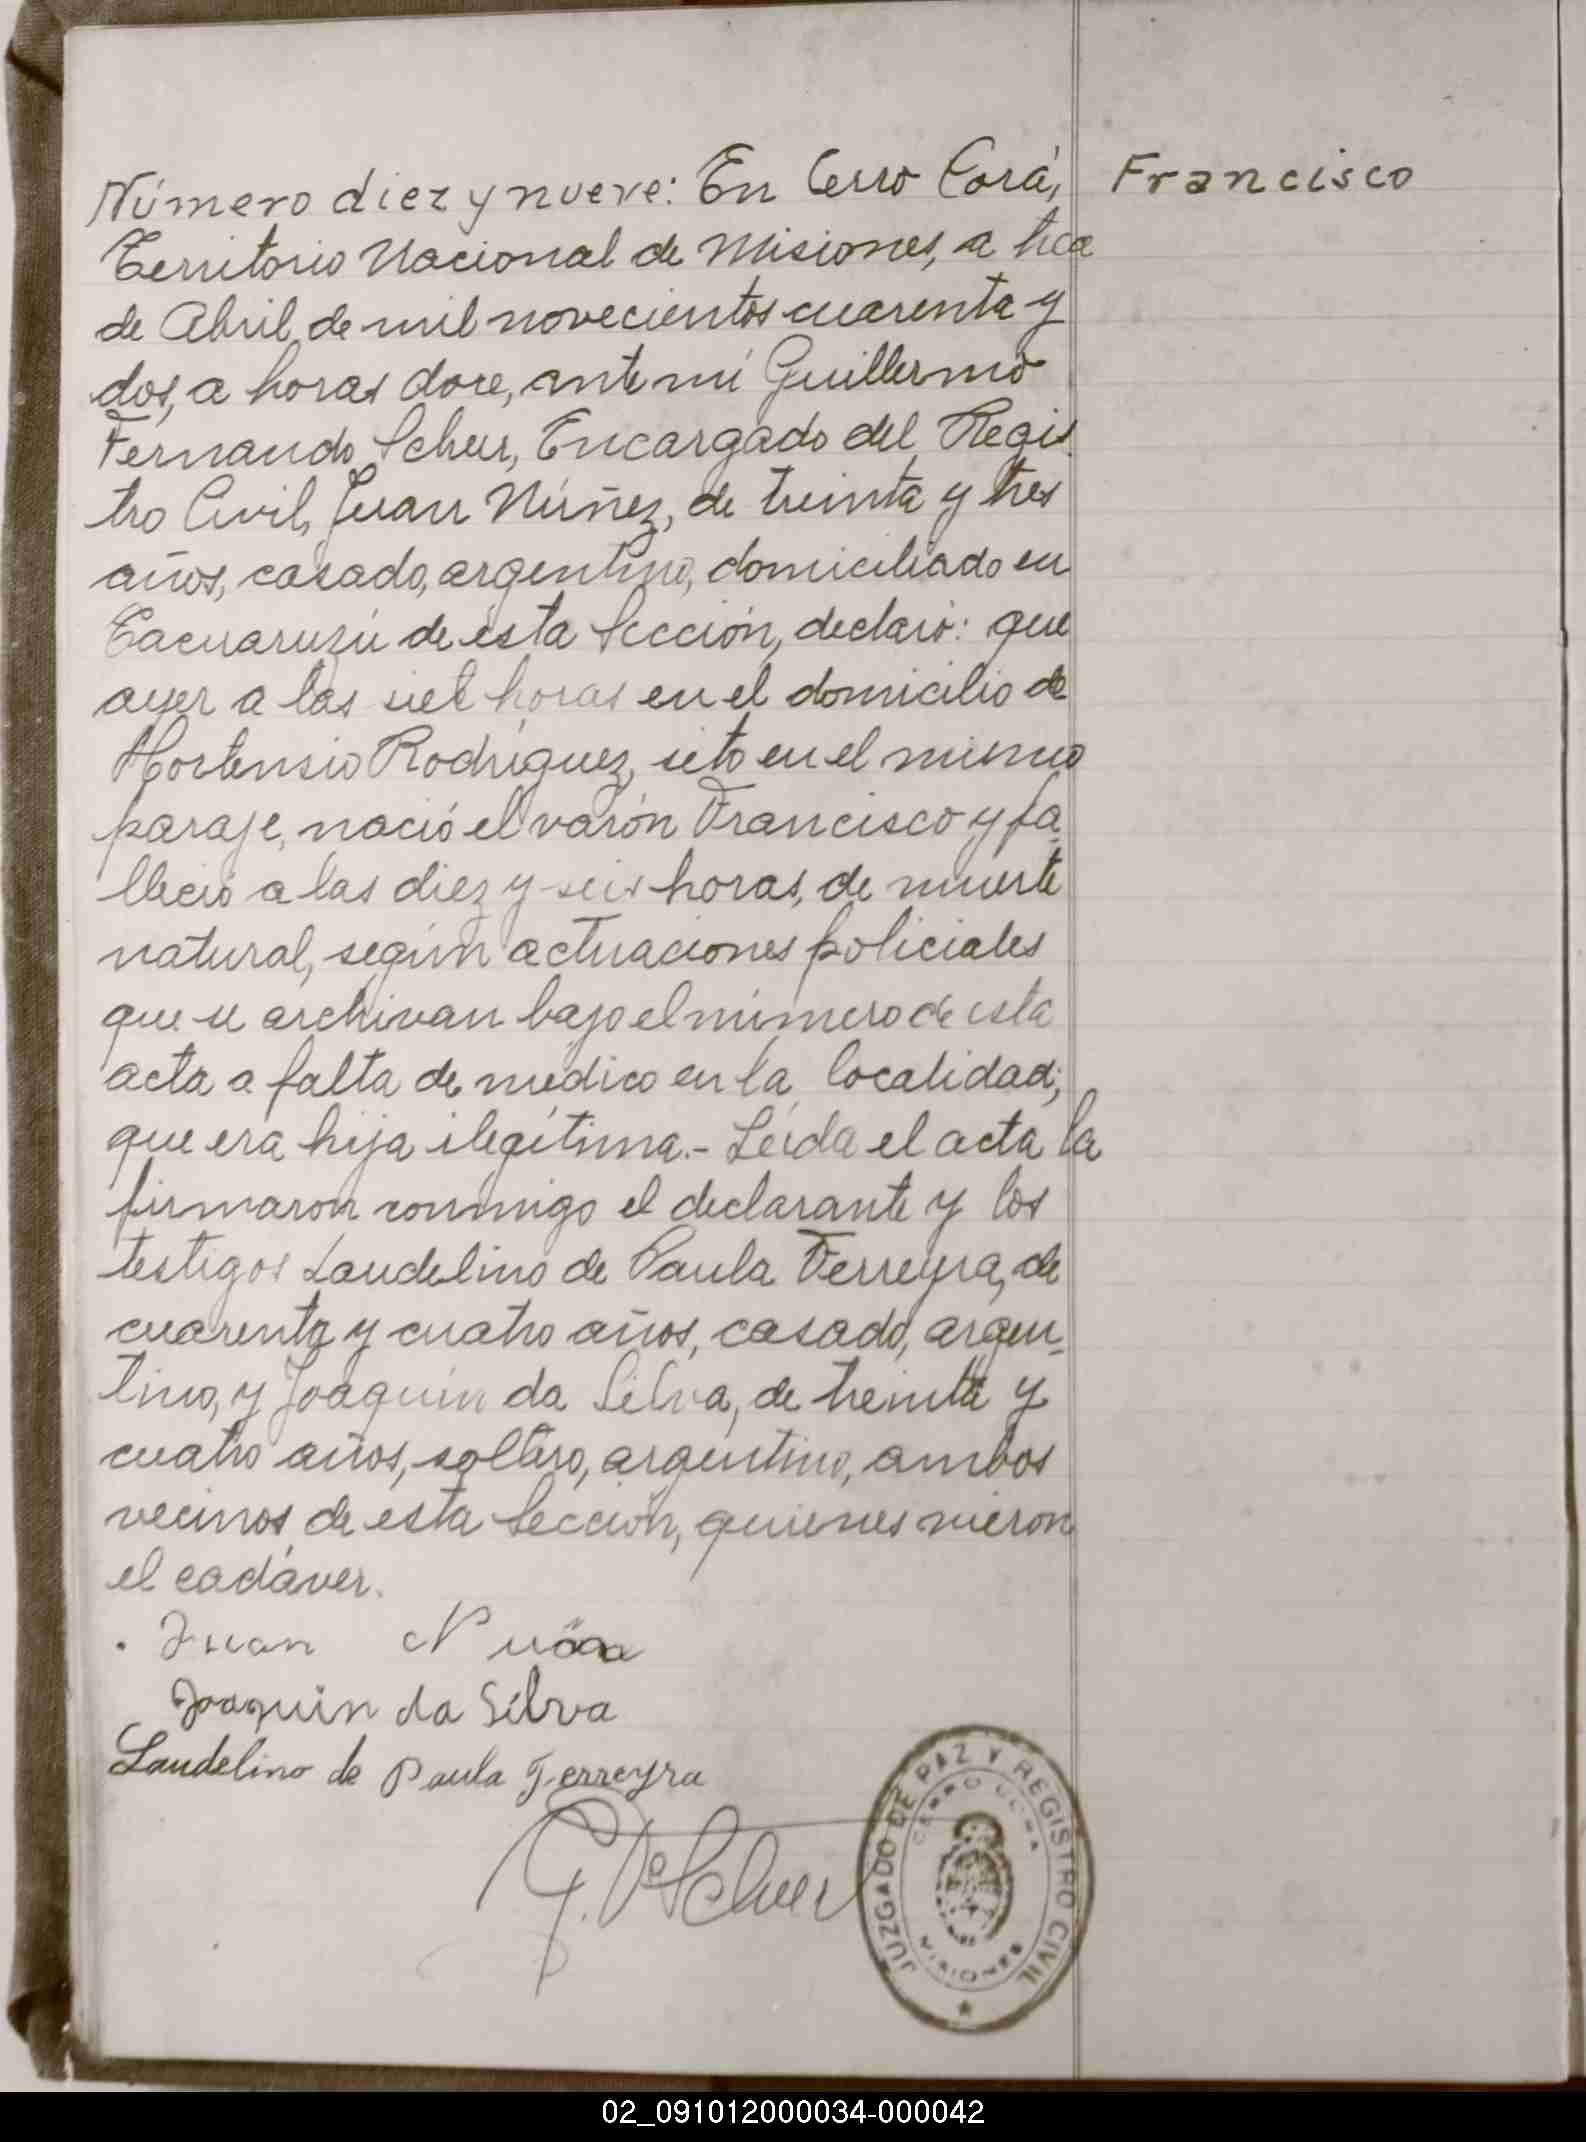 Número diez y nueve: En Cerro Corá,
Francisco
Territorio Nacional de Misiones, a trece
de Abril de mil novecientos cuarenta y
dos, a horas doce, ante mí Guillermo
Fernando Scheer, Encargado del Regis
tro Civil, Juan Núñez, de treinta y tres
años, casado, argentino, domiciliado en
Tacuaruzú de ésta Sección, declaró: que
ayer a las siete horas en el domicilio de
Hortensio Rodríguez, sito en el mismo
paraje, nació el varón Francisco y fa
lleció a las diez y seis horas, de muerte
natural, según actuaciones policiales
que se archivan bajo el número de esta
acta a falta de médico en la localidad;
que era hija ilegítima.- Leída el acta la
firmaron conmigo el declarante y los
testigos Laudelino de Paula Ferreyra, de
cuarenta y cuatro años, casado, argen-
tino, y Joaquín da Silva, de treinta y
cuatro años, soltero, argentino, ambos
vecinos de esta Sección, quienes vieron
el cadáver.
Juan
Joaquin da Silva
Laudelino de Paula Ferreyra
G. F. Scheer
JUZGADO DE PAZ Y REGISTRO CIVIL
CERRO CORA
MISIONES
02_091012000034-000042